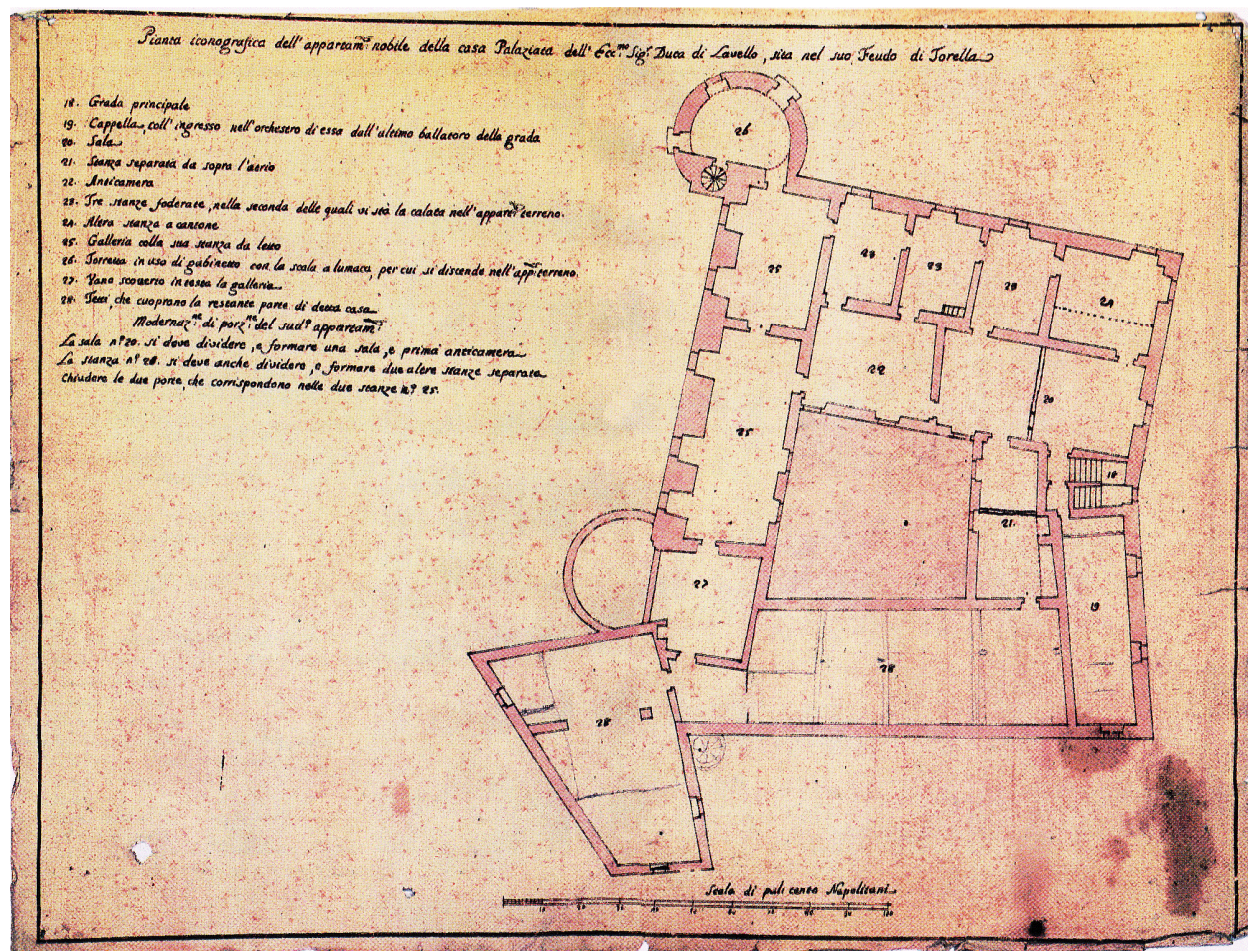 Pianta iconografica dell'appartam.to nobile della casa Palaziata dell'Ecc.mo Sig.r Duca di Lavello, sita nel suo Feudo di Torella
18. Grada principale
19. Cappella, coll'ingresso nell'orchestro di essa dall'ultimo ballatoro della grada
20. Sala
21. Stanza separata da sopra l'aerio
22. Anticamera
23. Tre stanze foderate, nella seconda delle quali vi stà la calata nell'appart.to terreno.
24. Altra stanza a cantone
25. Galleria colla sua stanza da letto
26. Torretta in uso di gabinetto con la scala a lumaca, per cui si discende nell'app.to terreno.
27. Vano scoverto in testa la galleria
28. Tetti, che cuoprono la restante parte di detta casa
Modernaz.ne di porz.ne del sud.o appartam.to
La sala n.o 20. si deve dividere, e formare una sala, e prima anticamera
La stanza n.o 28. si deve anche dividere, e formare due altre stanze separate
Chiudere le due porte, che corrispondono nelle due stanze n.o 25.
26
25
23
23
23
24
22
20
25
18
21.
27
19
28
28
Scala di pal.i cento Napolitani
10 20 30 40 50 60 70 80 90 100